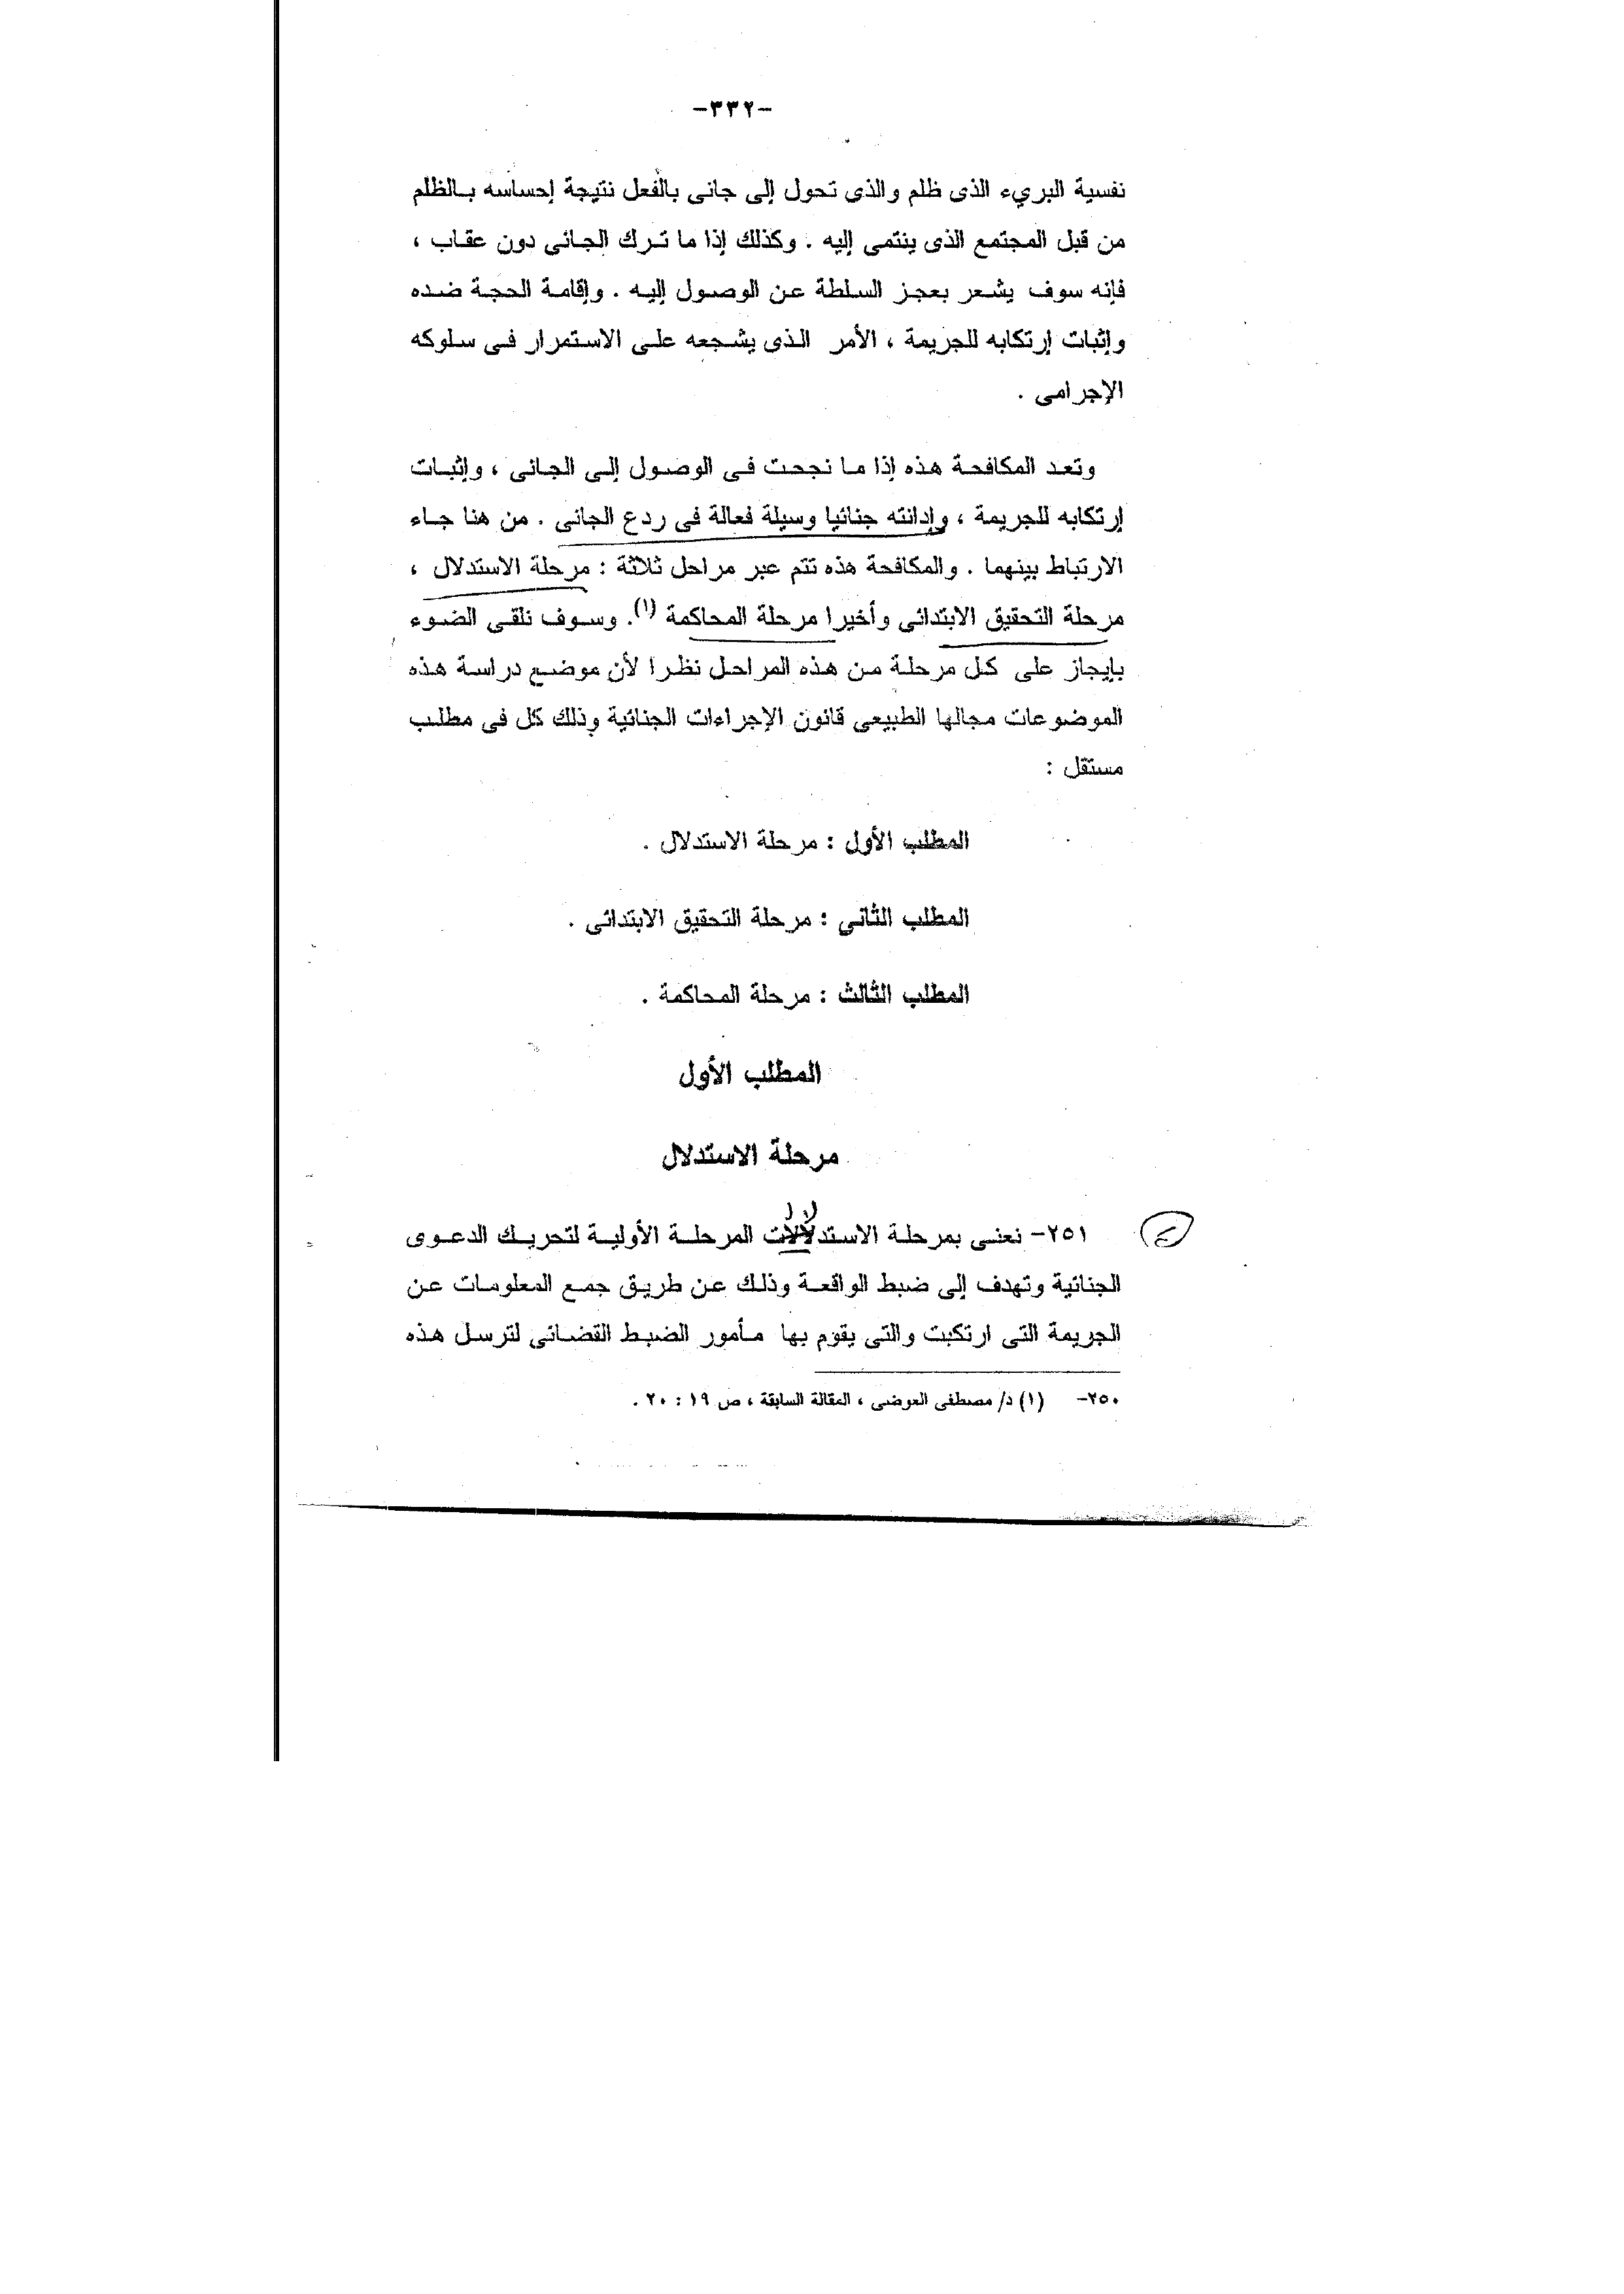 -٣٣٢-
نفسية البريء الذى ظلم والذى تحول إلى جانى بالفعل نتيجة إحساسه بالظلم
من قبل المجتمع الذى ينتمى إليه . وكذلك إذا ما ترك الجانى دون عقاب ،
فإنه سوف يشعر بعجز السلطة عن الوصول إليه . وإقامة الحجة ضده
وإثبات إرتكابه للجريمة ، الأمر الذى يشجعه على الاستمرار فى سلوكه
الإجرامى .
وتعد المكافحة هذه إذا ما نجحت فى الوصول إلى الجانى ، وإثبات
إرتكابه للجريمة ، وإدانته جنائيا وسيلة فعالة فى ردع الجانى . من هنا جاء
الارتباط بينهما . والمكافحة هذه تتم عبر مراحل ثلاثة : مرحلة الاستدلال ،
مرحلة التحقيق الابتدائى وأخيرا مرحلة المحاكمة (١). وسوف نلقى الضوء
بإيجاز على كل مرحلة من هذه المراحل نظرا لأن موضع دراسة هذه
الموضوعات مجالها الطبيعى قانون الإجراءات الجنائية وذلك كل فى مطلب
مستقل :
المطلب الأول : مرحلة الاستدلال .
المطلب الثانى : مرحلة التحقيق الابتدائى .
المطلب الثالث : مرحلة المحاكمة .
المطلب الأول
مرحلة الاستدلال
٢٥١- نعنى بمرحلة الاستدلالات المرحلة الأولية لتحريك الدعوى
الجنائية وتهدف إلى ضبط الواقعة وذلك عن طريق جمع المعلومات عن
الجريمة التى ارتكبت والتى يقوم بها مأمور الضبط القضائى لترسل هذه
٢٥٠- (١) د/ مصطفى العوضى ، المقالة السابقة ، ص ١٩ : ٢٠ .